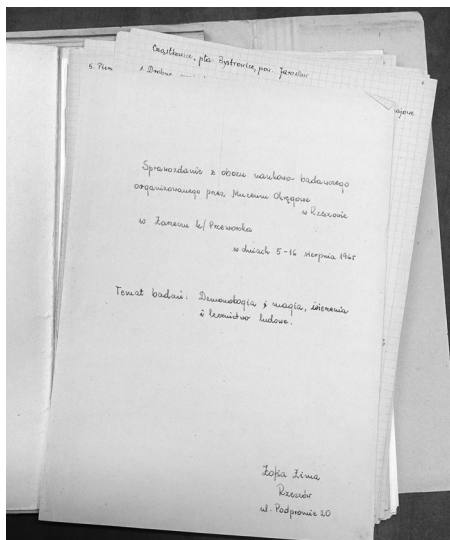 Cząstkowice, pta Bystrowice, pow. Jarosław
5. Pieśń
1. Drobne
Sprawozdanie z obozu naukowo-badawczego
organizowanego przez Muzeum Okręgowe
w Rzeszowie
w Zarzeczu k/Przeworska
w dniach 5-16 sierpnia 1965
Temat badań: Demonologia, magia, wierzenia
i lecznictwo ludowe.
Zofia Zima
Rzeszów
ul. Podpromie 20